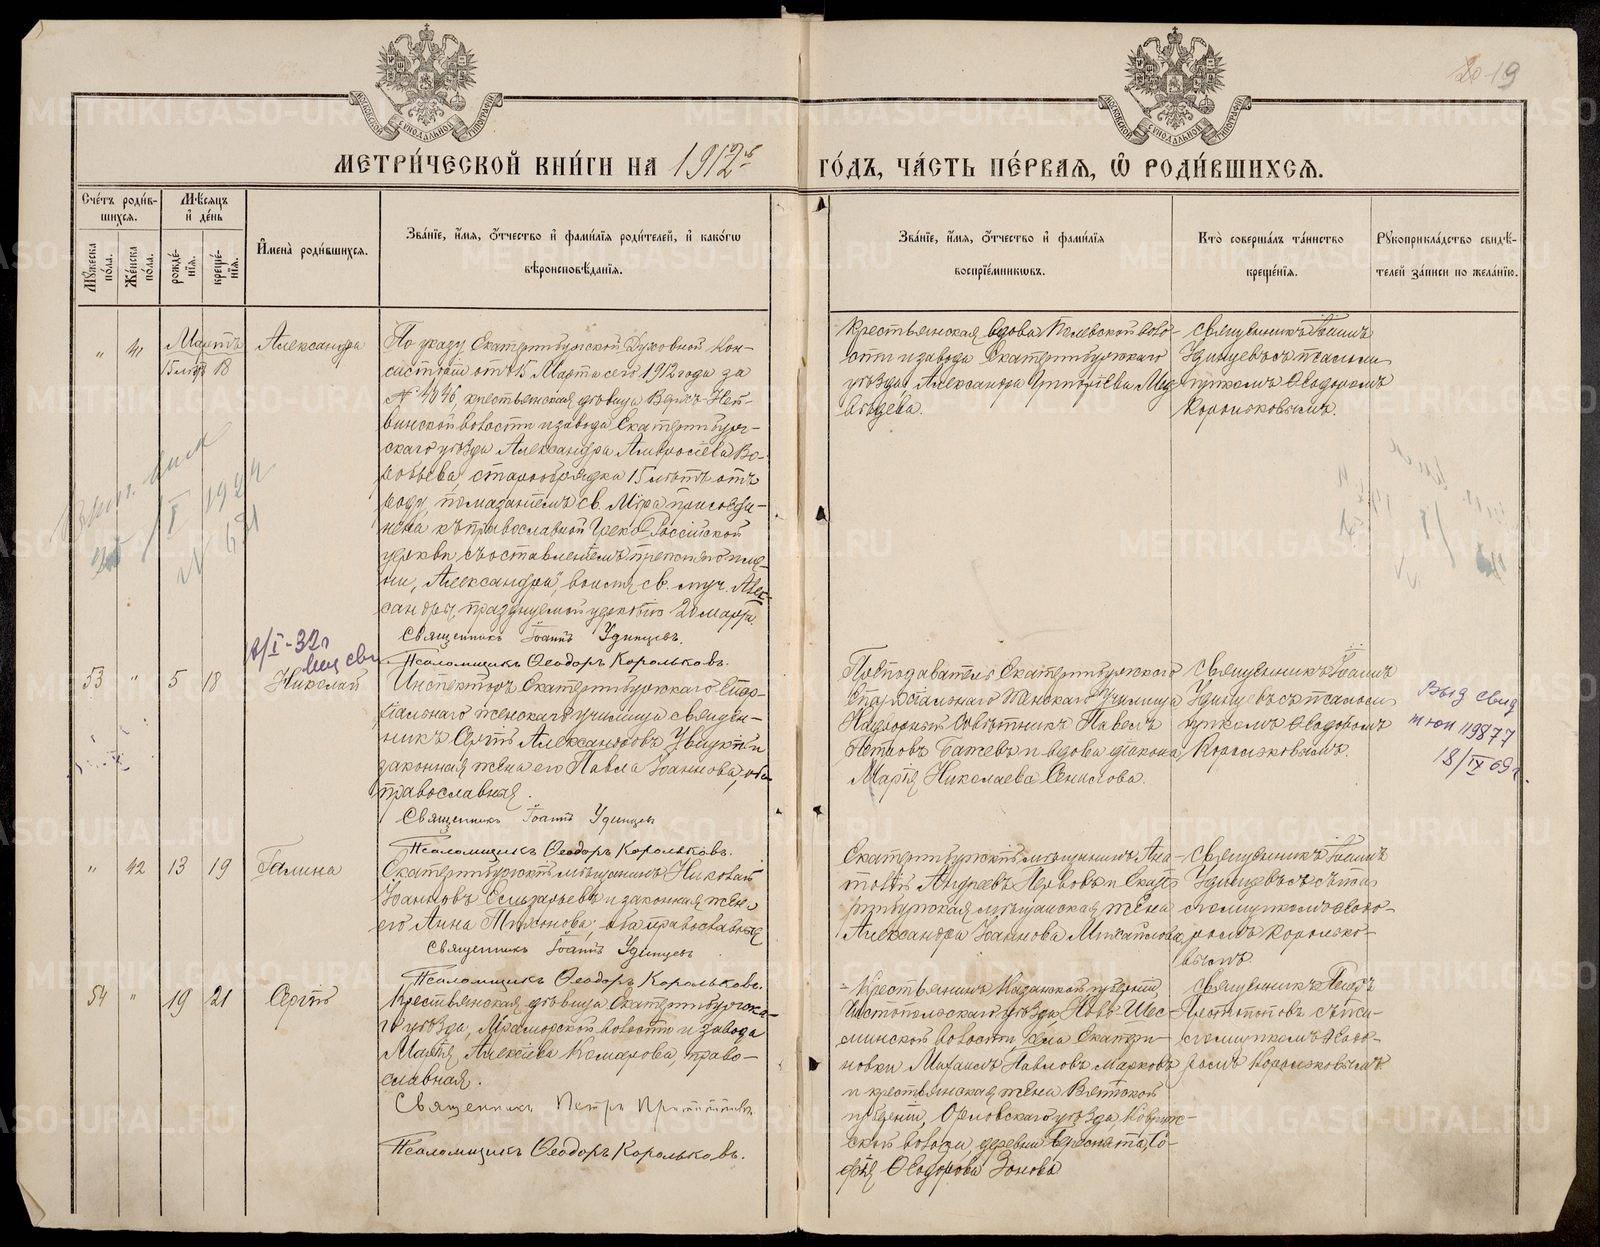 20 19
МОСКОВСКОЙ СѴНОДАЛЬНОЙ ТИПОГРАФІИ
МОСКОВСКОЙ СѴНОДАЛЬНОЙ ТИПОГРАФІИ
МЕТРИ́ЧЕСКОЙ КНИ́ГИ НА 1912й ГО́ДЪ, ЧА́СТЬ ПЕ́РВАЯ, Ѡ҆ РОДИ́ВШИХСЯ.
Сче́тъ роди́в-
шихся.
Мꙋ́жеска по́ла.
Же́нска по́ла.
Мѣ́сяцъ
и҆ де́нь
рожде́-
нїя.
креще́-
нїя.
И҆мена̀ роди́вшихся.
Зва́нїе, и҆́мя, ѻ҆́тчество и҆ фами́лїя роди́телей, и҆ како́гѡ
вѣроисповѣ́данїя.
Зва́нїе, и҆́мя, ѻ҆́тчество и҆ фами́лїя
воспрїе́мниковъ.
Кто̀ соверша́лъ та́инство
креще́нїя.
Рꙋкоприкла́дство свидѣ́-
телей за́писи по жела́нїю.
„ 41 Мартъ
15 лѣтъ 18
Александра
По указу Екатеринбургской Духовной Кон-
систоріи отъ 15 Марта сего 1912 года за
№ 4046, крестьянская дѣвица Верхъ-Ней-
винской волости и завода Екатеринбург-
скаго уѣзда Александра Амвросіева Во-
робьева, старообрядка 15 лѣтъ отъ
роду, помазаніемъ св. Мѵра присоеди-
нена къ православной Греко-Россійской
церкви съ оставленіемъ прежняго име-
ни „Александра", во имя св. муч. Алек-
сандры, празднуемой церковію 20 марта.
Священникъ Іоаннъ Удинцевъ.
Псаломщикъ Ѳеодоръ Корольковъ.
Крестьянская вдова Полевской воло-
сти и завода Екатеринбургскаго
уѣзда Александра Григоріева Мед-
вѣдева.
Священникъ Іоаннъ
Удинцевъ съ псаломщи-
комъ Ѳеодоромъ
Корольковымъ.
1924
/I-32г
53 „ 5 18 Николай
Инспекторъ Екатеринбургскаго Епар-
хіальнаго женскаго училища священ-
никъ Сергѣй Александровъ Увицкій и
законная жена его Павла Іоаннова, оба
православные.
Священникъ Іоаннъ Удинцевъ
Псаломщикъ Ѳеодоръ Корольковъ.
Преподаватель Екатеринбургскаго
Епархіальнаго Женскаго Училища
Надворный совѣтникъ Павелъ
Петровъ и вдова діакона
Марія Николаева
Священникъ Іоаннъ
Удинцевъ съ псаломщи-
комъ Ѳеодоромъ
Корольковымъ.
Выд свид
119877
18/IX 69г.
„ 42 13 19 Галина
Екатеринбургскій мѣщанинъ Николай
Іоанновъ и законная жена
его Анна Тихонова, оба православные
Священникъ Іоаннъ Удинцевъ
Псаломщикъ Ѳеодоръ Корольковъ.
Екатеринбургскій мѣщанинъ Ана-
толій Андреевъ Перовъ и Екате-
ринбургская мѣщанская жена
Александра Іоаннова Михайлова
Священникъ Іоаннъ
Удинцевъ съ пса-
ломщикомъ Ѳеодо-
ромъ Королько-
вымъ
54 „ 19 21 Сергѣй
Крестьянская дѣвица Екатеринбургска-
го уѣзда, Мраморской волости и завода
Марія Алексіева Комарова, право-
славная.
Священникъ Петръ
Псаломщикъ Ѳеодоръ Корольковъ.
Крестьянинъ Казанской губерніи
Чистопольскаго уѣзда Ново-Шеш-
минской волости, села Екатери-
новки Михаилъ Павловъ Марковъ
и крестьянская жена Вятской
губерніи, Орловскаго уѣзда,
ской волости деревни Со-
фія Ѳеодорова Зонова
Священникъ Петръ
съ пса-
ломщикомъ Ѳеодо-
ромъ Корольковымъ
METRIKI.GASO-URAL.RU